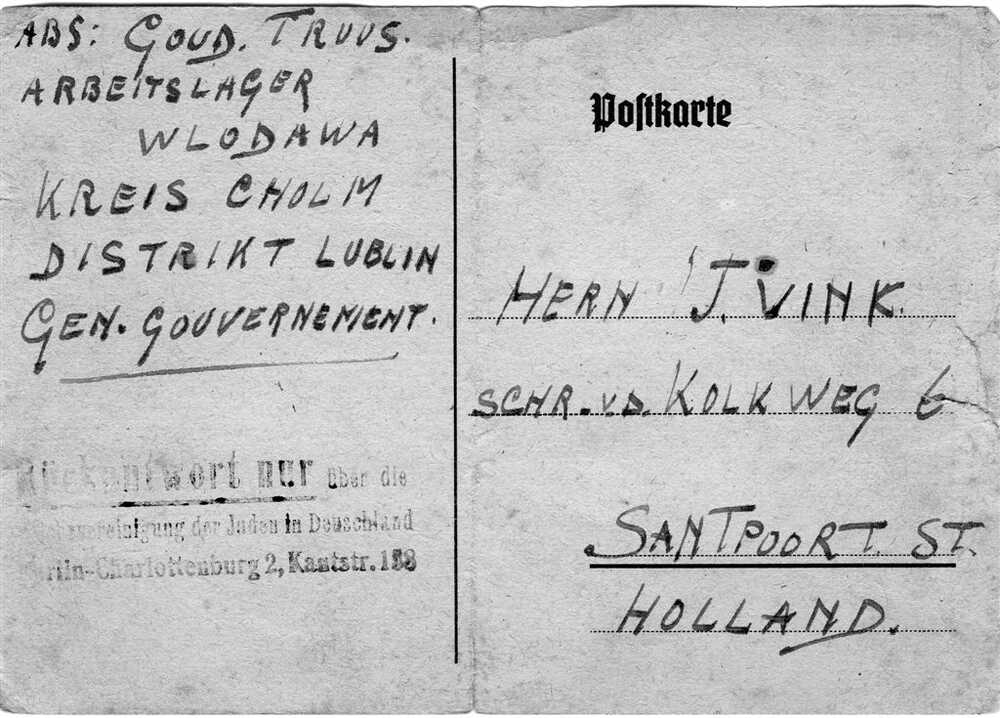 ABS: GOUD. TRUUS.
ARBEITSLAGER
WLODAWA
KREIS CHOLM
DISTRIKT LUBLIN
GEN. GOUVERNEMENT.
Rückantwort nur über die
der Juden in Deuschland
Berlin-Charlottenburg 2, Kantstr. 158
Postkarte
HERN J. VINK.
SCHR. V.D. KOLKWEG 6
SANTPOORT. ST.
HOLLAND.